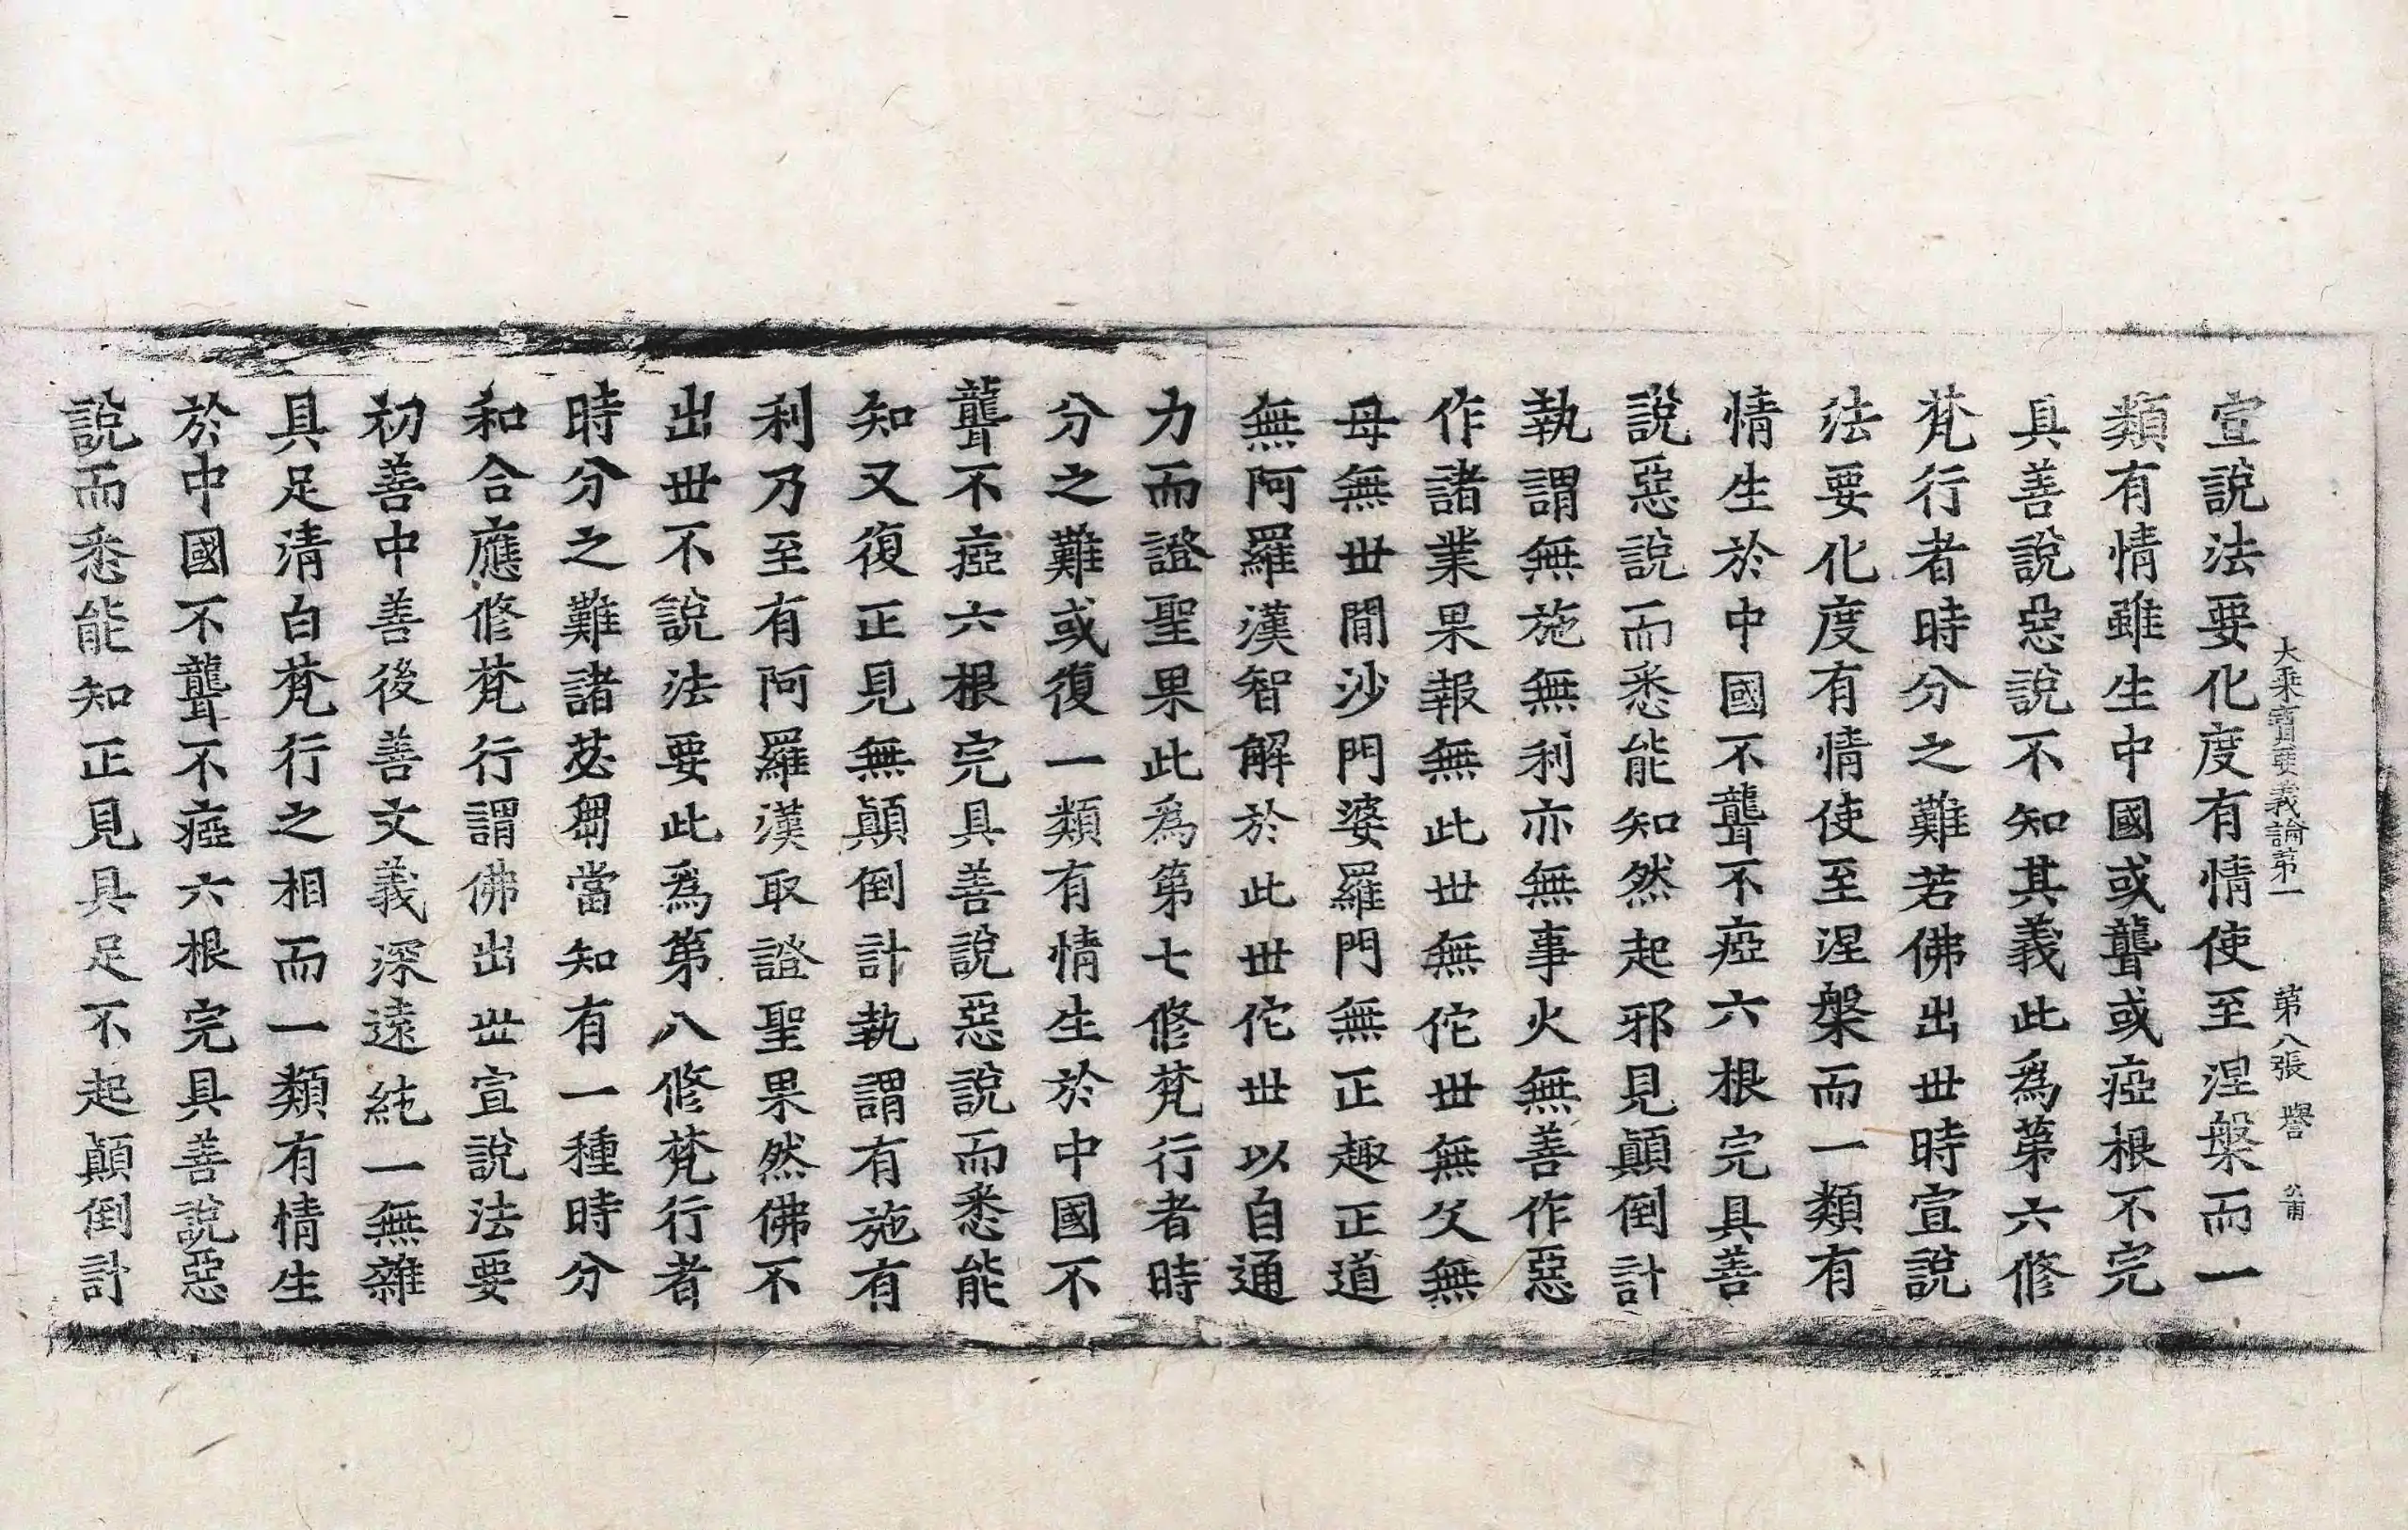 大乘寶要義論第一　第八張　譽　公甫
宣說法要化度有情使至涅槃而一
類有情雖生中國或聾或瘂根不完
具善說惡說不知其義此爲第六修
梵行者時分之難若佛出丗時宣說
法要化度有情使至涅槃而一類有
情生於中國不聾不瘂六根完具善
說惡說而悉能知然起邪見顛倒計
執謂無施無利亦無事火無善作惡
作諸業果報無此丗無佗丗無父無
母無丗間沙門婆羅門無正趣正道
無阿羅漢智解於此丗佗丗以自通
力而證聖果此爲第七修梵行者時
分之難或復一類有情生於中國不
聾不瘂六根完具善說惡說而悉能
知又復正見無顛倒計執謂有施有
利乃至有阿羅漢取證聖果然佛不
出丗不說法要此爲第八修梵行者
時分之難諸苾芻當知有一種時分
和合應修梵行謂佛出丗宣說法要
初善中善後善文義深遠純一無雜
具足清白梵行之相而一類有情生
於中國不聾不瘂六根完具善說惡
說而悉能知正見具足不起顛倒計